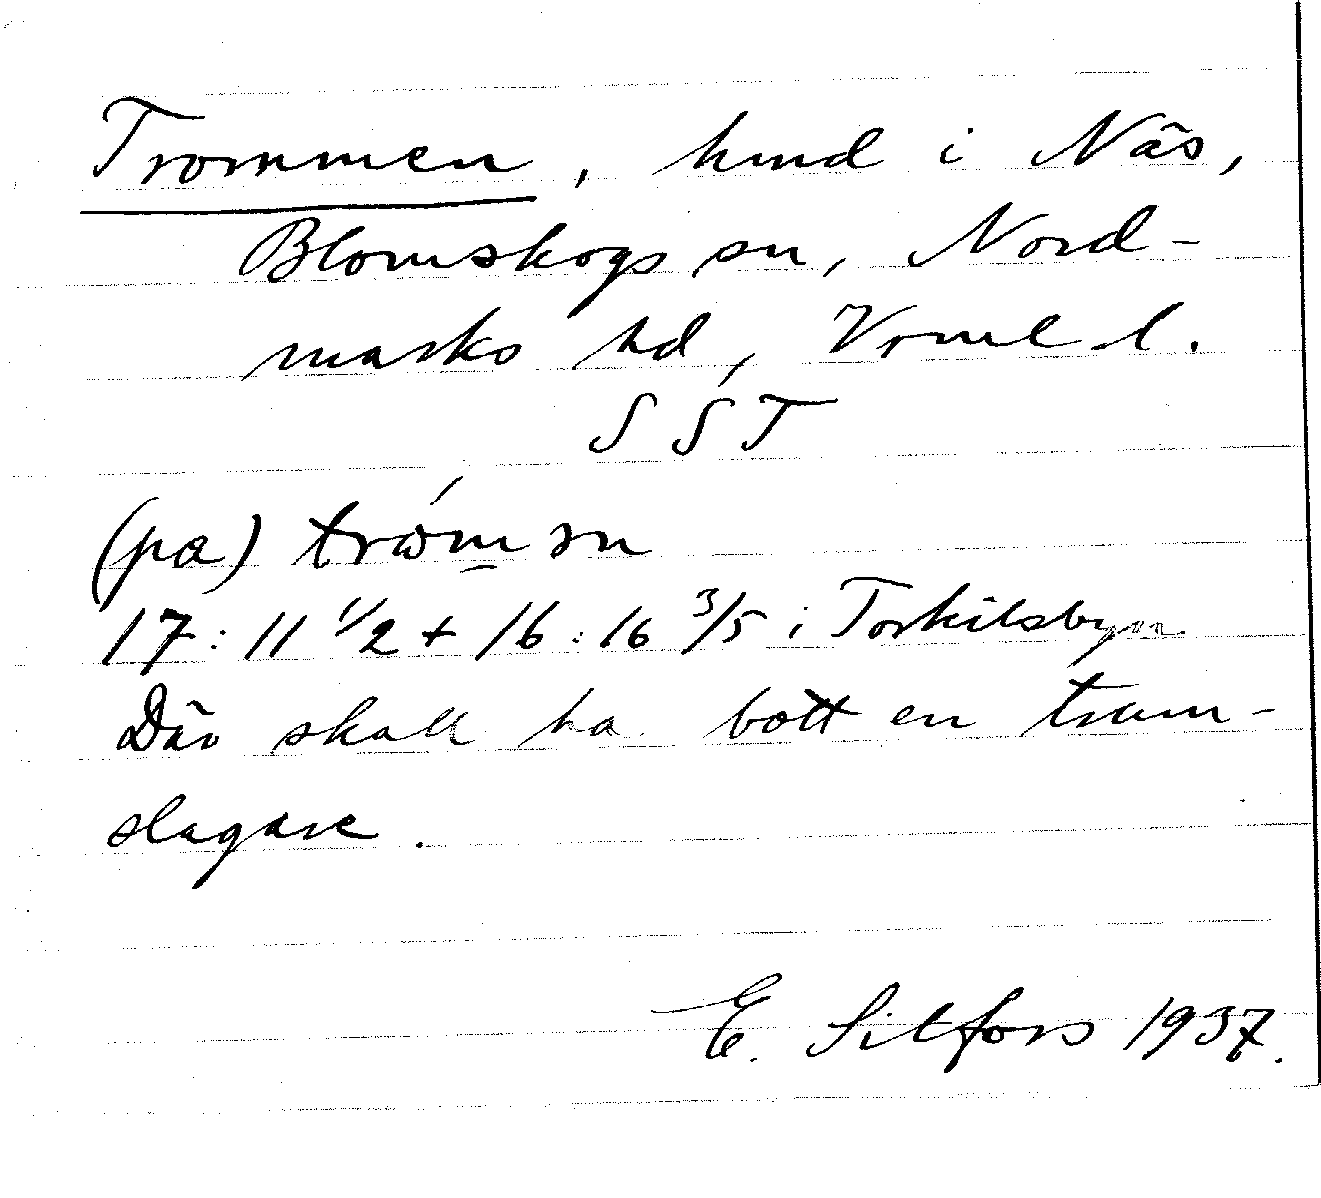 Trommen, hmd i Näs,
Blomskogs sn, Nord-
marks hd, Vrml l.
SST
(pa)
17:11 1/2 + 16:16 3/5 i Torkilsbyn
Där skall ha bott en trum-
slagare.
E. Silfors 1937.